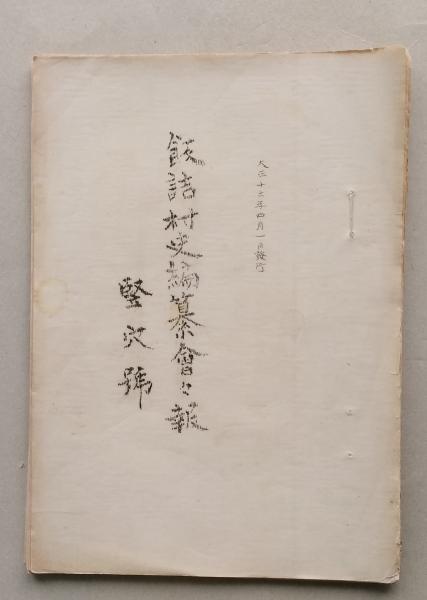 大正十三年四月一日發行
飯詰村史編纂會々報
竪穴號